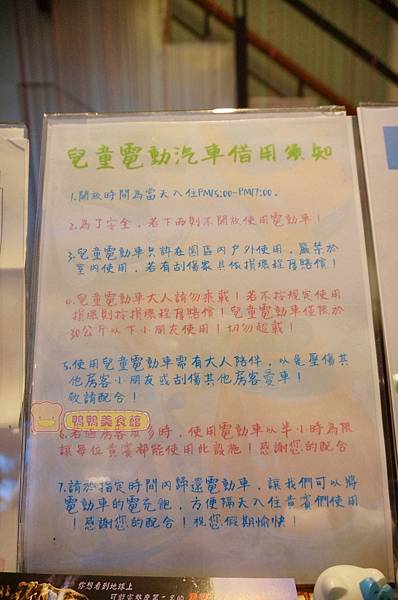 兒童電動汽車借用須知
1.開放時間為當天入住PM15:00-PM17:00.
2.為了安全,若下雨則不開放使用電動車!
3.兒童電動車只許在園區內户外使用,嚴禁於
室內使用,若有刮傷家具依損壞程度賠償!
4.兒童電動車大人請勿乘載!若不按規定使用
損壞則按損壞程度賠償!兒童電動車僅限於
30公斤以下小朋友使用!切勿超載!
5.使用兒童電動車需有大人陪伴,以免壓傷其
他房客小朋友或刮傷其他房客愛車!
敬請配合!
鴨鴨美食館
6.若遇房客眾多時,使用電動車以半小時為限
讓每位貴賓都能使用此設施!感謝您的配合
7.請於指定時間內歸還電動車,讓我們可以將
電動車的電充飽,方便隔天入住貴賓們使用
!感謝您的配合!祝您假期愉快!
你想看到地球上